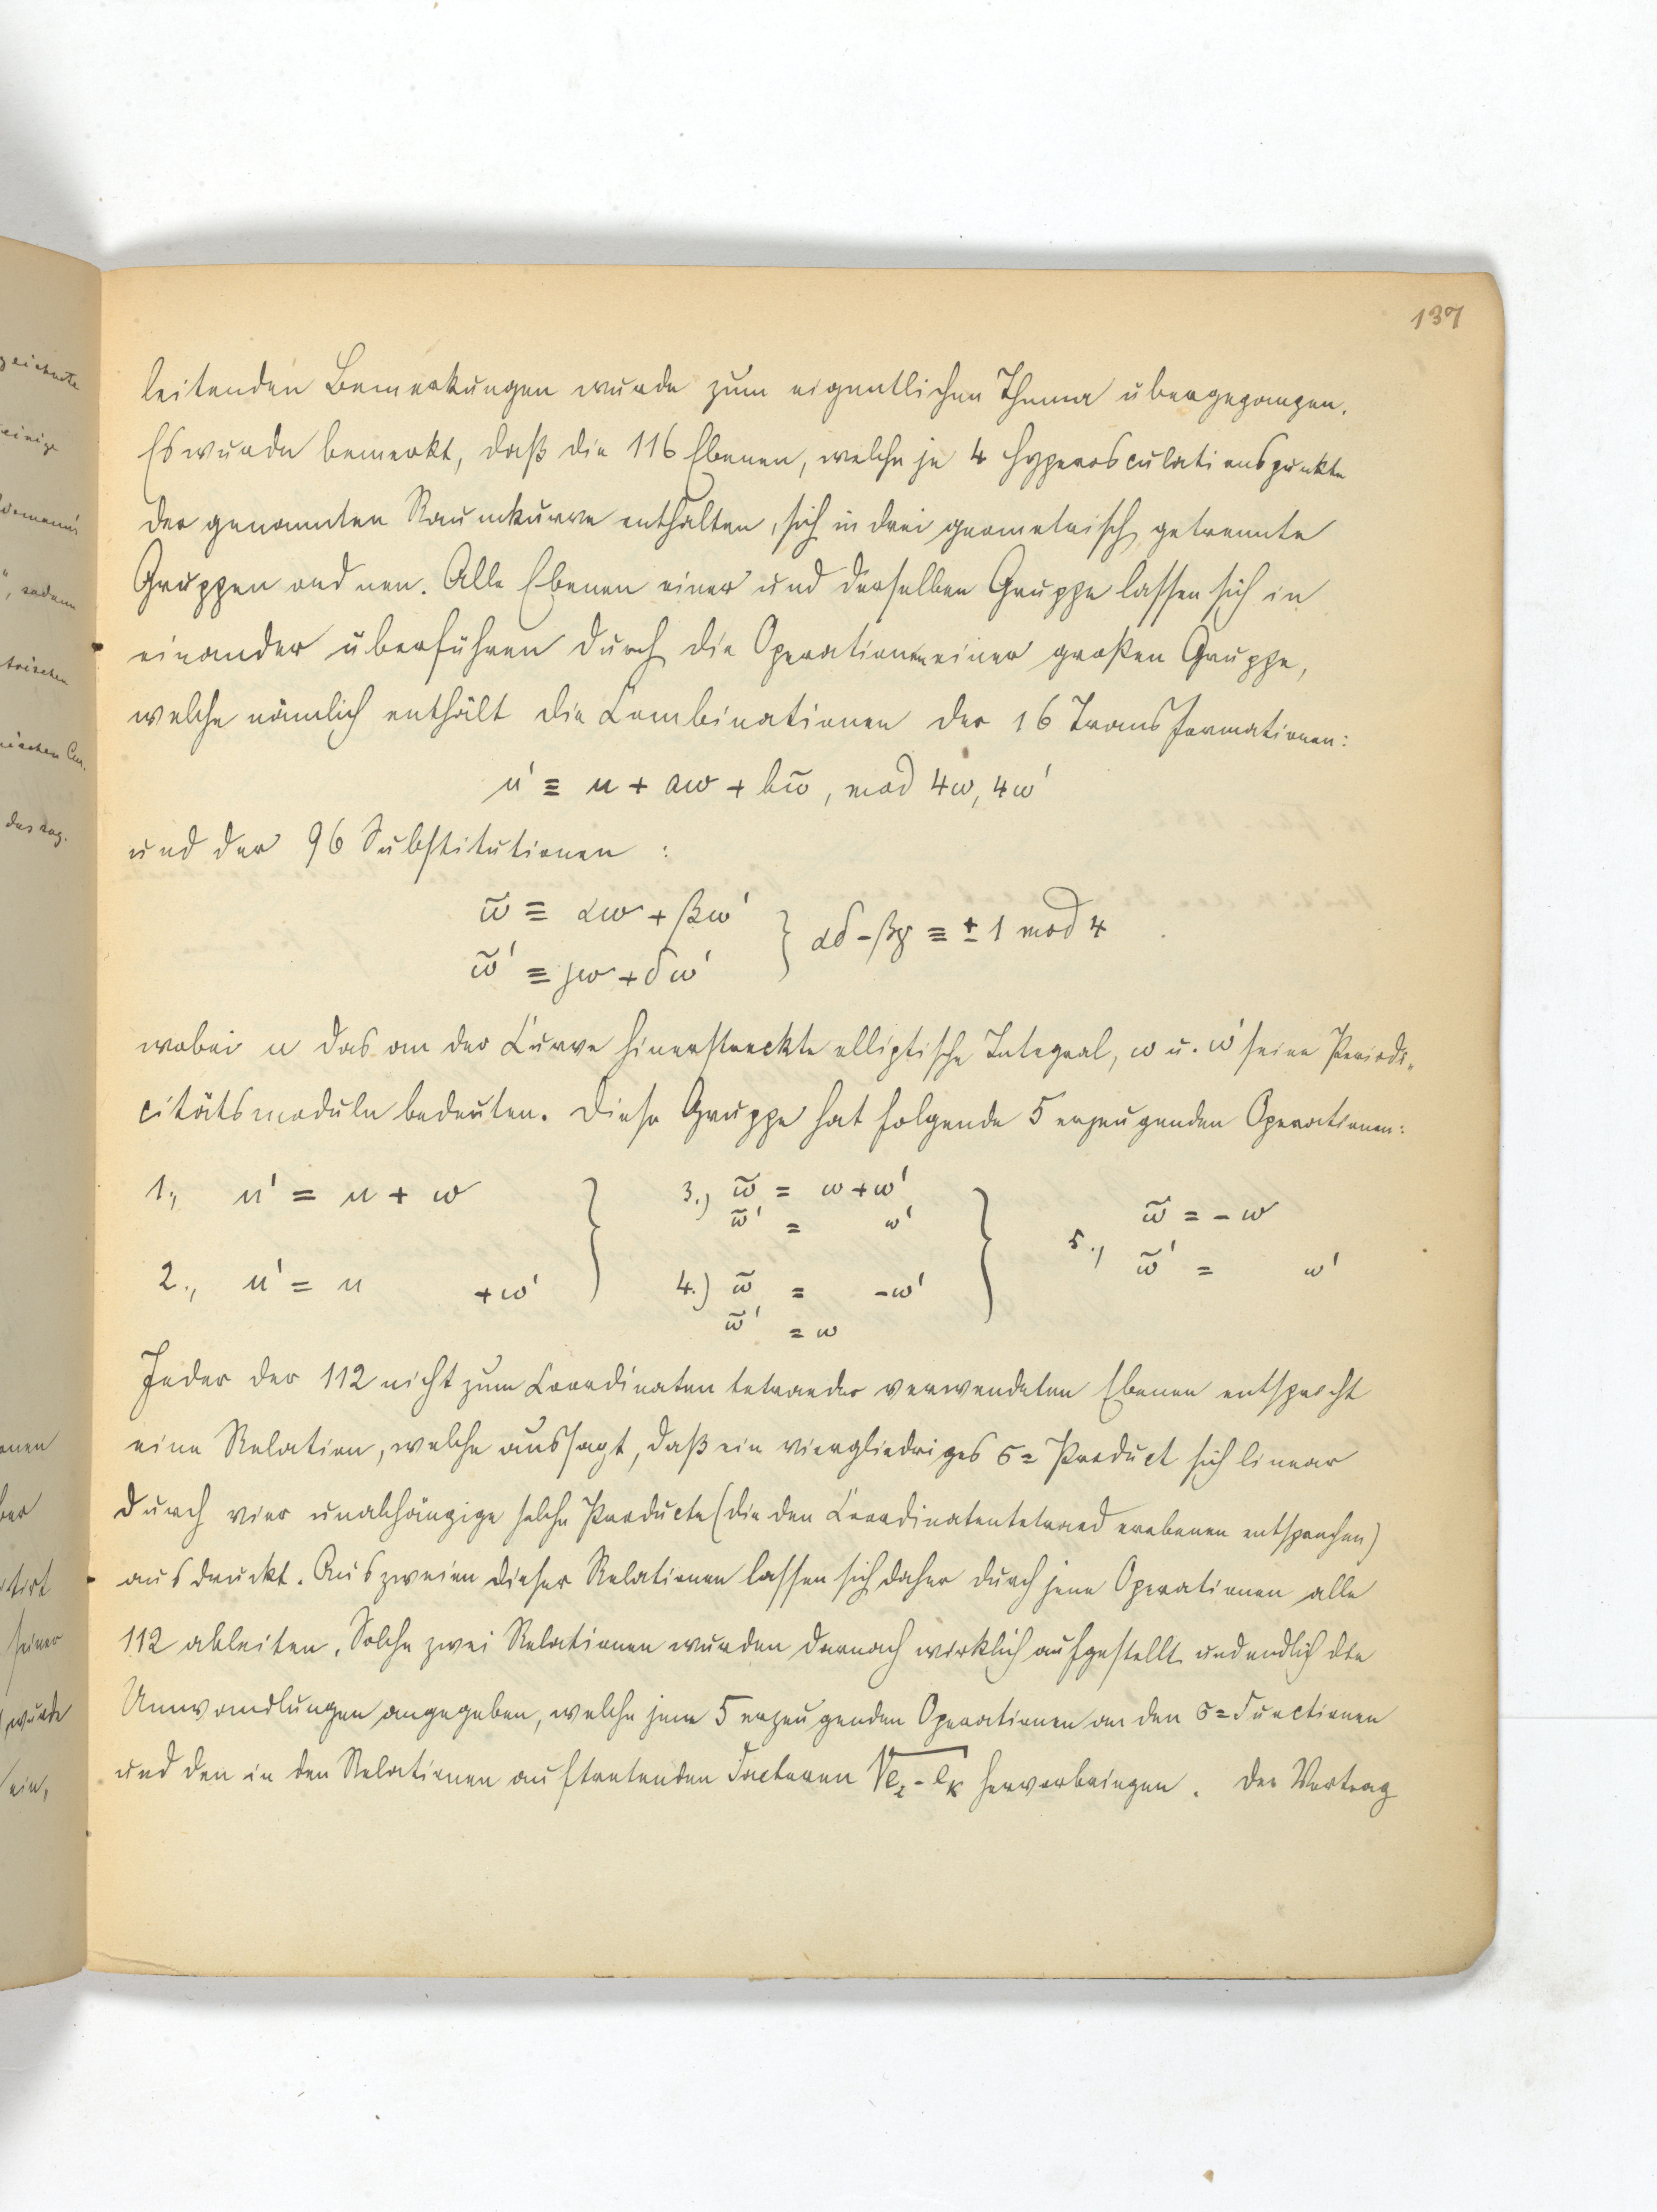 137
leitenden Bemerkungen wurde zum eigentlichen Thema übergegangen.
Es wurde bemerkt, daß die 116 Ebenen, welche je 4 Hyperosculationspunkte
der genannten Raumkurve enthalten, sich in drei geometrisch getrennte
Gruppen ordnen. Alle Ebenen einer und derselben Gruppe lassen sich in
einander überführen durch die Operationen einer großen Gruppe,
welche nämlich enthält die Combinationen der 16 Transformationen:
u' ≡ u + aω + bω̃, mod 4ω, 4ω'
und der 96 Substitutionen :
ω̃ ≡ αω + βω'
ω̃' ≡ γω + δω' } αδ - βγ ≡ ± 1 mod 4
wobei u das an der Curve hinerstreckte elliptische Integral, ω u. ω' seine Periodi-
citätsmoduln bedeuten. Diese Gruppe hat folgende 5 erzeugenden Operationen:
1., u' = u + ω } 3.) ω̃ = ω + ω' } 5., ω̃ = - ω
ω̃' = ω' ω̃' = ω'
2., u' = u + ω' 4.) ω̃ = -ω'
ω̃' = ω
Jeder der 112 nicht zum Coordinatentetraeder verwendeten Ebenen entspricht
eine Relation, welche aussagt, daß ein viergliedriges σ= Product sich linear
durch vier unabhängige solche Producte (die den Coordinatentetraederebenen entsprechen)
ausdruckt. Aus zweien dieser Relationen lassen sich daher durch jene Operationen alle
112 ableiten. Solche zwei Relationen wurden darnach wirklich aufgestellt und endlich die
Umwandlungen angegeben, welche jene 5 erzeugenden Operationen an den σ= Functionen
und den in den Relationen auftretenden Factoren √e_i - e_k hervorbringen. Der Vortrag